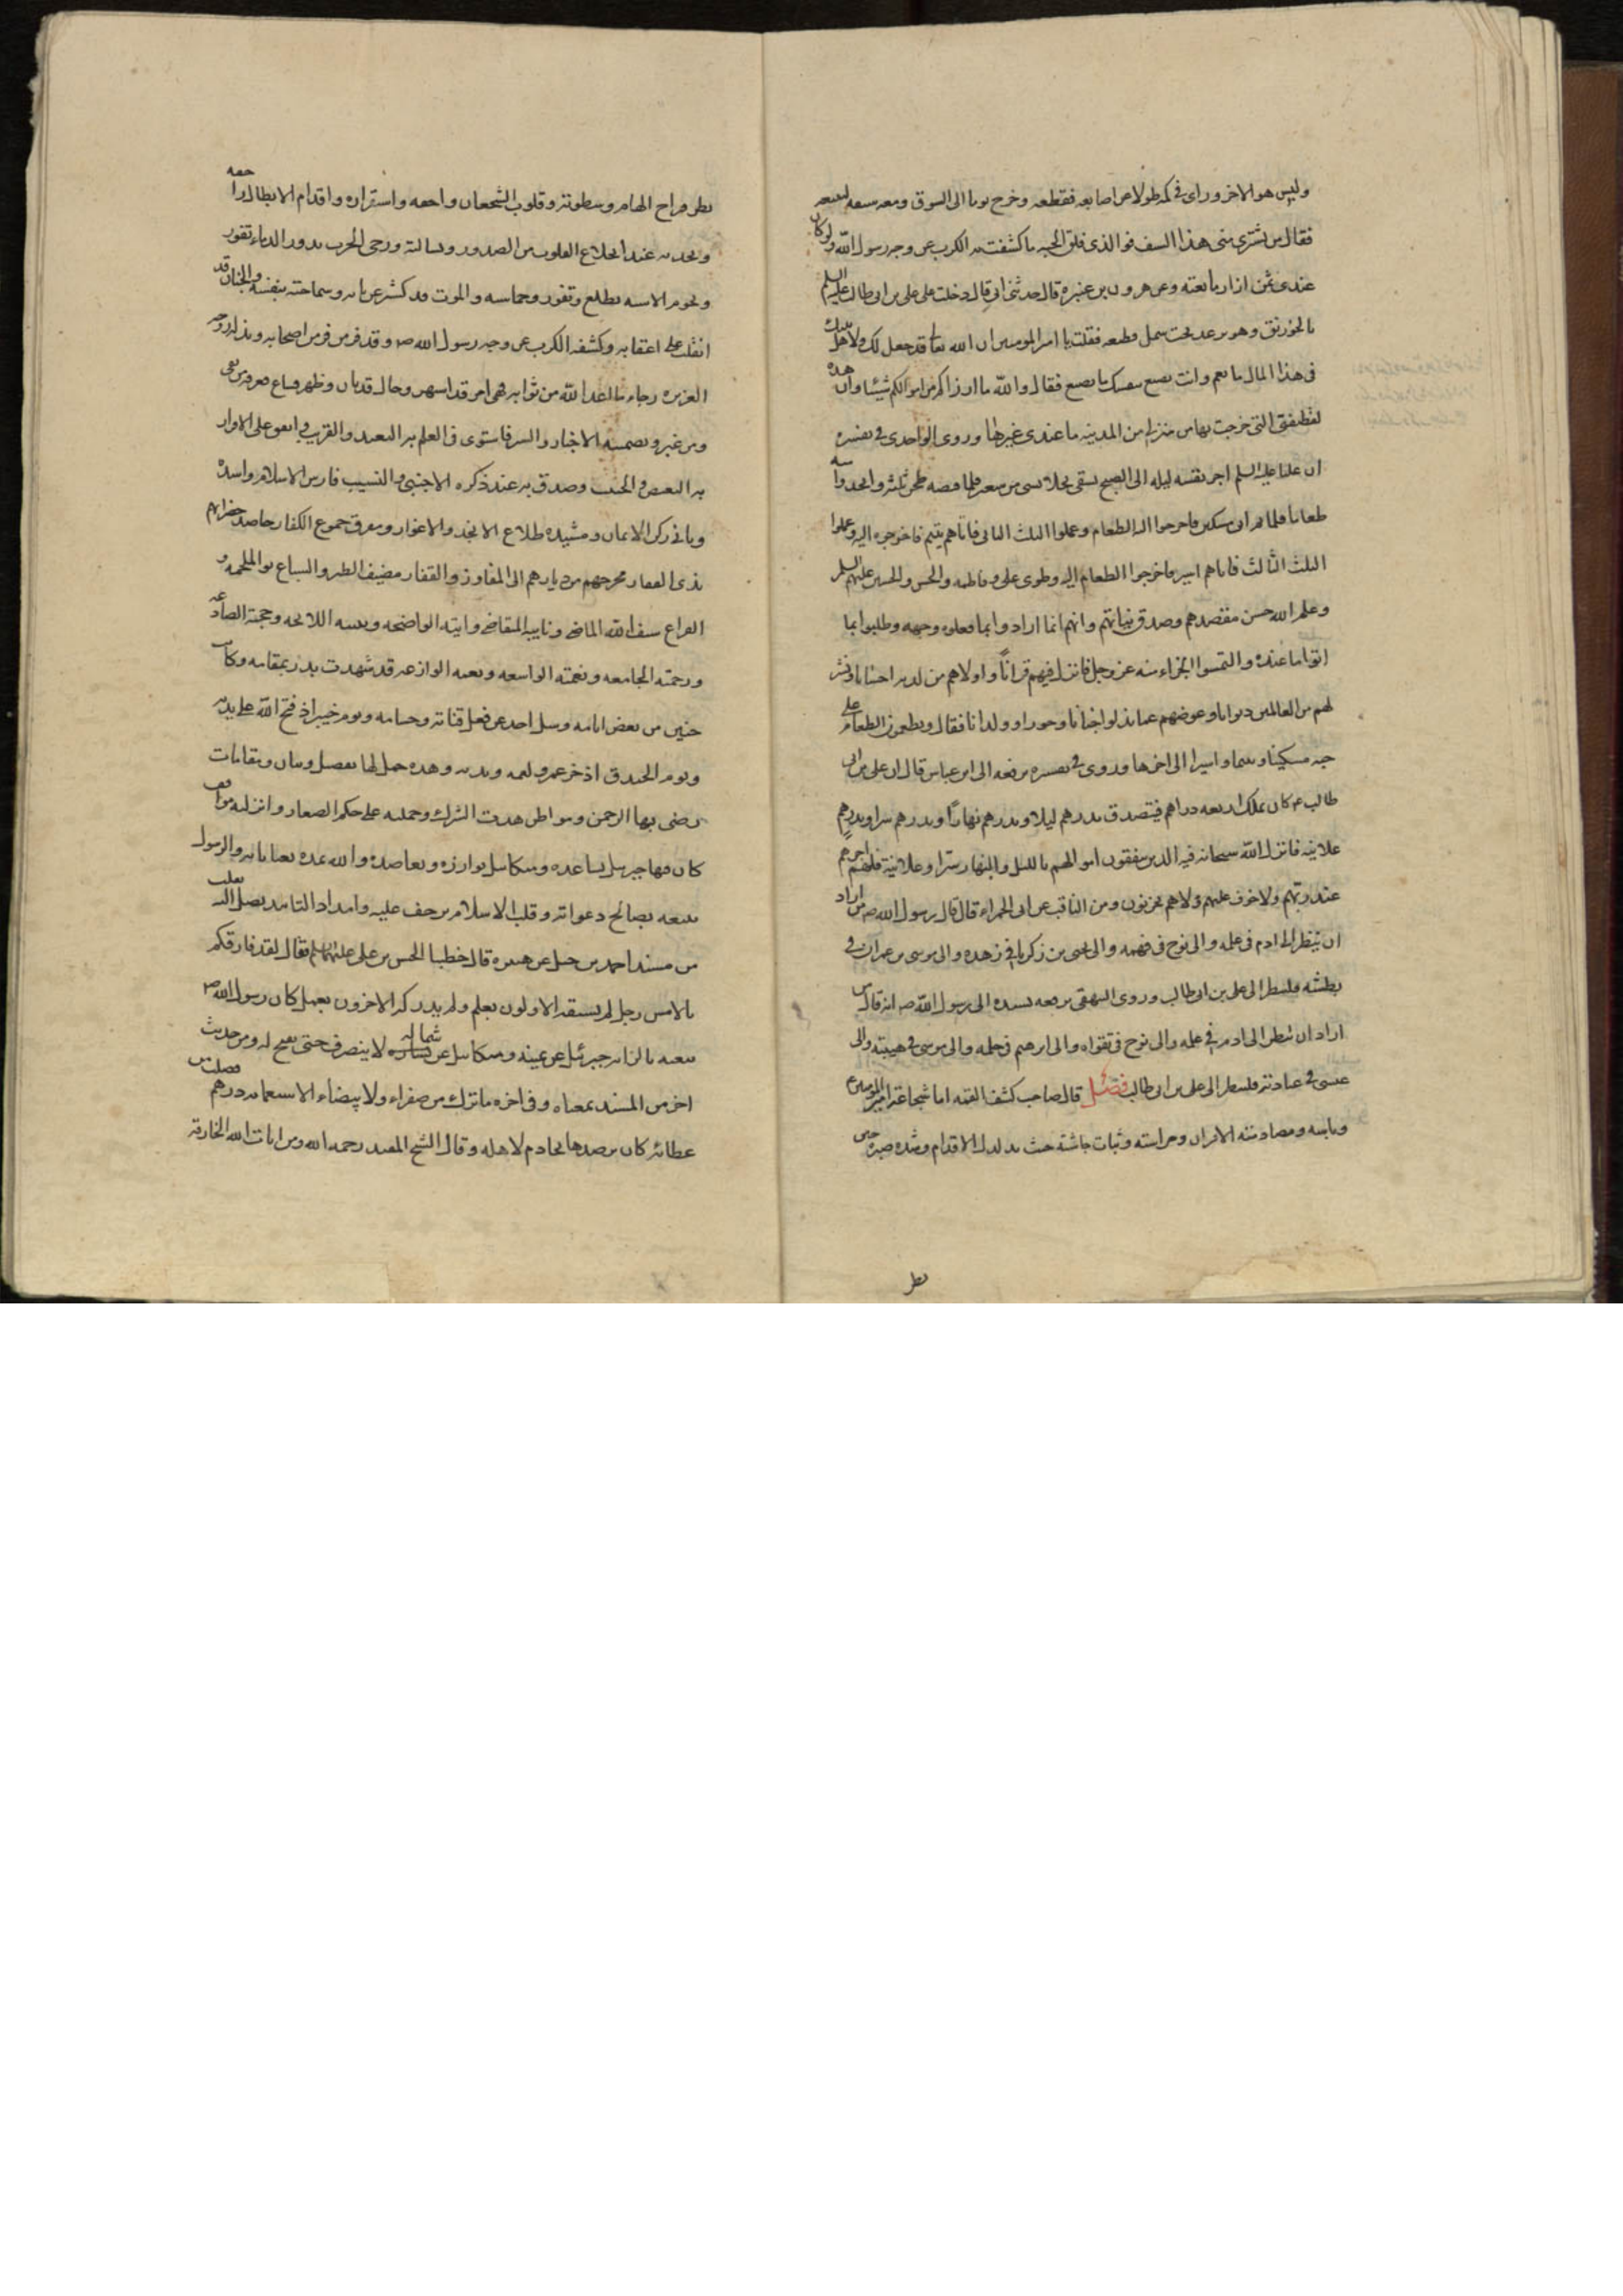 وليس هو الاخر وراى في كمه طولا عن اصابعه فقطعه وخرج يوما الى السوق ومعه سيفه ليبيعه
فقال من يشترى منى هذا السيف فوالذى فلق الحبه ما كشفت به الكرب عن وجه رسول الله ولو كان
عندى ثمن ازار ما بعته وعن هرون بن عنبره قال حدثنى ابى قال دخلت على على بن ابى طالب عليه السلم
بالخورنق وهو يرعد تحت سمل قطيفه فقلت يا امير المومنين ان الله تعالى قد جعل لك ولاهل بيتك
فى هذا المال ما يعم وانت تصنع بنفسك ما تصنع فقال والله ما ارزاكم من اموالكم شيئا وان هذه
لقطيفتى التى خرجت بها من منزلى من المدينه ما عندى غيرها وروى الواحدى في تفسيره
ان عليا عليه السلم اجر نفسه ليله الى الصبح يسقى نخلا بشى من شعير فلما قبضه طحن ثلثه واتخذوا منه
طعاما فلما تم اتى مسكين فاخرجوا اليه الطعام وعملوا الثلث الثانى فاتاهم يتيم فاخرجوه اليه وعملوا
الثلث الثالث فاتاهم اسير فاخرجوا الطعام اليه وطوى على وفاطمه والحسن والحسين عليهم السلم
وعلم الله حسن مقصدهم وصدق نياتهم وانهم انما ارادوا بما فعلوه وجهه وطلبوا بما
اتوا ما عنده والتمسوا الجزاء منه عز وجل فانزل فيهم قرانا واولاهم من لدنه احسانا ونشر
لهم من العالمين ديوانا وعوضهم عما بذلوا جنانا وحورا وولدانا فقال ويطعمون الطعام على
حبه مسكينا ويتيما واسيرا الى اخرها وروى في تفسيره يرفعه الى ابن عباس قال ان على بن ابى
طالب ع كان يملك اربعه دراهم فتصدق بدرهم ليلا وبدرهم نهارا وبدرهم سرا وبدرهم
علانيه فانزل الله سبحانه فيه الذين ينفقون اموالهم بالليل والنهار سرا وعلانية فلهم اجرهم
عند ربهم ولا خوف عليهم ولا هم يحزنون ومن المناقب عن ابى الحمراء قال قال رسول الله ص من اراد
ان ينظر الى ادم فى علمه والى نوح فى فهمه والى يحيى بن زكريا فى زهده والى موسى بن عمران في
بطشه فلينظر الى على بن ابى طالب وروى البيهقى يرفعه بسنده الى رسول الله ص انه قال من
اراد ان ينظر الى ادم في علمه والى نوح فى تقواه والى ابرهيم فى حلمه والى موسى في هيبته والى
عيسى في عبادته فلينظر الى على بن ابى طالب فصل قال صاحب كشف الغمه اما شجاعة امير المومنين ع
وباسه ومصادمته الاقران ومراسته وثبات جاشه حيث تدلدل الاقدام وشده صبره حين
تطر
تطير فراخ الهام وسطوته وقلوب الشجعان واجفه واستقراره واقدام الابطال راجفه
ونجدته عند انخلاع القلوب من الصدور وبسالته ورحى الحرب تدور والدماء تفور
ونجوم الاسنه تطلع وتغور وحماسه والموت قد كشر عن نابه وسماحته بنفسه والجبان قد
انقلب على اعقابه وكشفه الكرب عن وجه رسول الله ص وقد فر من فر من اصحابه وبذله روحه
العزيزه رجاء ما اعد الله من ثوابه فهى امر قد اشتهر وحال قد بان وظهر وشاع فعرفه من بقى
ومن غبر وتضمنته الاخبار والسير فاستوى فى العلم به البعيد والقريب واتفق على الاقرار
به البغيض والحبيب وصدق به عند ذكره الاجنبى والنسيب فارس الاسلام واسده
وبانى ركن الايمان ومشيده طلاع الانجد والاغوار ومفرق جموع الكفار حاصد خضرائهم
بذى الفقار مخرجهم من ديارهم الى المفاوز والقفار مضيف الطير والسباع يوم الملحمه و
القراع سيف الله الماضى ونايبه المتقاضى وايته الواضحه وبينته اللائحه وحجته الصادعه
ورحمته الجامعه ونعمته الواسعه ونقمته الوازعه قد شهدت بدر بمقامه وكانت
حنين من بعض ايامه وسل احد عن فعل قناته وحسامه ويوم خيبر اذ فتح الله على يديه
ويوم الخندق اذ خر عمرو لفمه ويديه وهذه جمل لها تفصيل وبيان ومقامات
رضى بها الرحمن ومواطن هدت الشرك وحملته على حكم الصغار وانزلته مواقف
كان فيها جبريل يساعده وميكائيل يوازره ويعاضده والله يمده بعنايته والرسول
يتبعه بصالح دعواته وقلب الاسلام يرجف عليه وامداد التاييد يصل اليه
من مسند احمد بن حنبل عن هبيره قال خطبنا الحسن بن على عليهما السلم فقال لقد فارقكم
بالامس رجل لم يسبقه الاولون بعلم ولم يدركه الاخرون بعمل كان رسول الله ص
يبعثه بالرايه جبرئيل عن يمينه وميكائيل عن شماله لا ينصرف حتى يفتح له ومن حديث
اخر من المسند بمعناه وفى اخره ما ترك من صفراء ولا بيضاء الا سبعمايه درهم فضلت من
عطائه كان يرصدها لخادم لاهله وقال الشيخ المفيد رحمه الله ومن ايات الله الخارقه